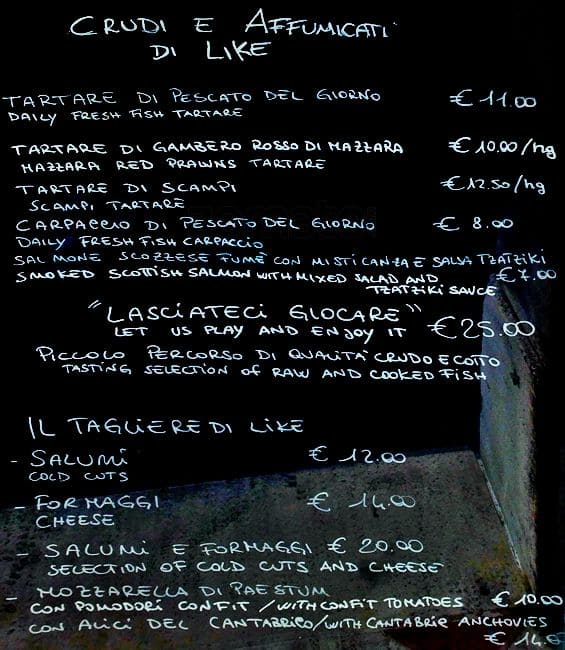 CRUDI E AFFUMICATI
DI LIKE
TARTARE DI PESCATO DEL GIORNO € 11.00
DAILY FRESH FISH TARTARE
TARTARE DI GAMBERO ROSSO DI MAZZARA € 10.00/hg
MAZZARA RED PRAWNS TARTARE
TARTARE DI SCAMPI €12.50/hg
SCAMPI TARTARE
CARPACCIO DI PESCATO DEL GIORNO € 8.00
DAILY FRESH FISH CARPACCIO
SALMONE SCOZZESE FUMÉ CON MISTICANZA E SALSA TZATZIKI
SMOKED SCOTTISH SALMON WITH MIXED SALAD AND €7.00
TZATZIKI SAUCE
"LASCIATECI GIOCARE"
LET US PLAY AND ENJOY IT €25.00
PICCOLO PERCORSO DI QUALITÀ CRUDO E COTTO
TASTING SELECTION OF RAW AND COOKED FISH
IL TAGLIERE DI LIKE
- SALUMI € 12.00
COLD CUTS
- FORMAGGI € 14.00
CHEESE
- SALUMI E FORMAGGI € 20.00
SELECTION OF COLD CUTS AND CHEESE
- MOZZARELLA DI PAESTUM
CON POMODORI CONFIT / WITH CONFIT TOMATOES € 10.00
CON ALICI DEL CANTABRICO/WITH CANTABRIC ANCHOVIES
€ 14.00